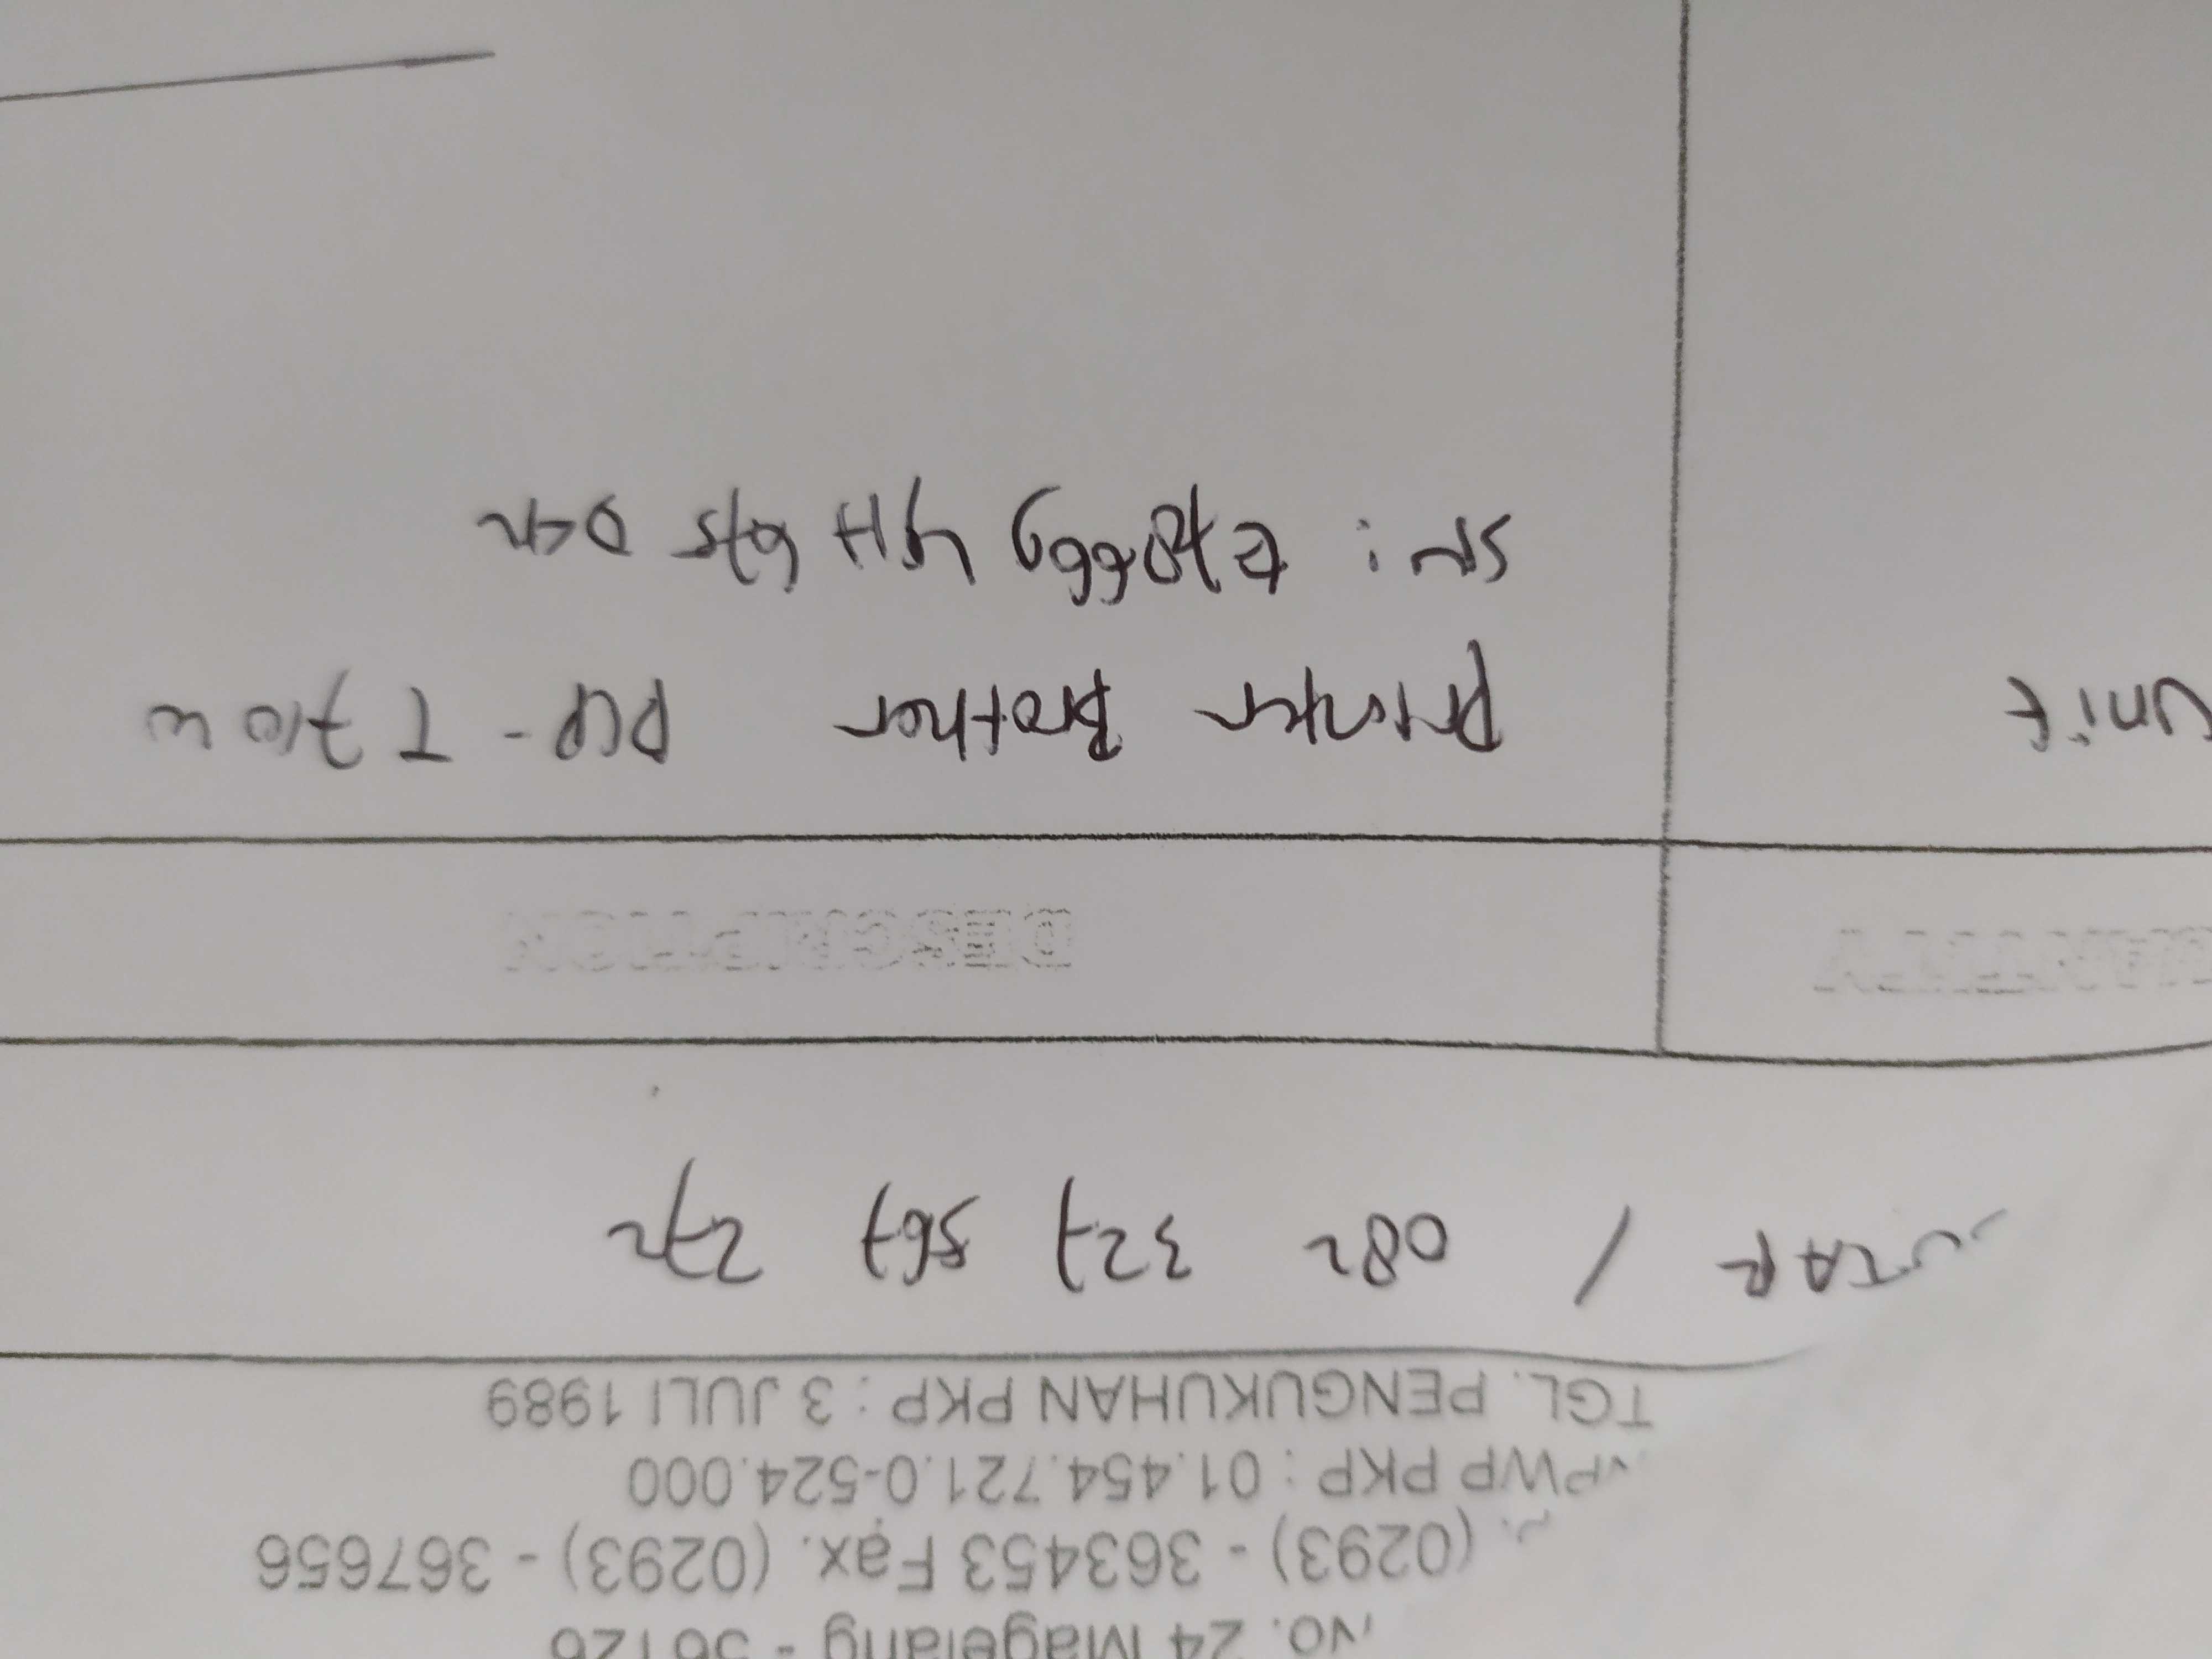 No. 24 Magelang - 56126
(0293) - 363453 Fax. (0293) - 367656
NPWP PKP : 01.454.721.0-524.000
TGL. PENGUKUHAN PKP : 3 JULI 1989
/ 082 327 567 272
QUANTITY DESCRIPTION
Unit Printer Brother DCP - T 710 W
SN :